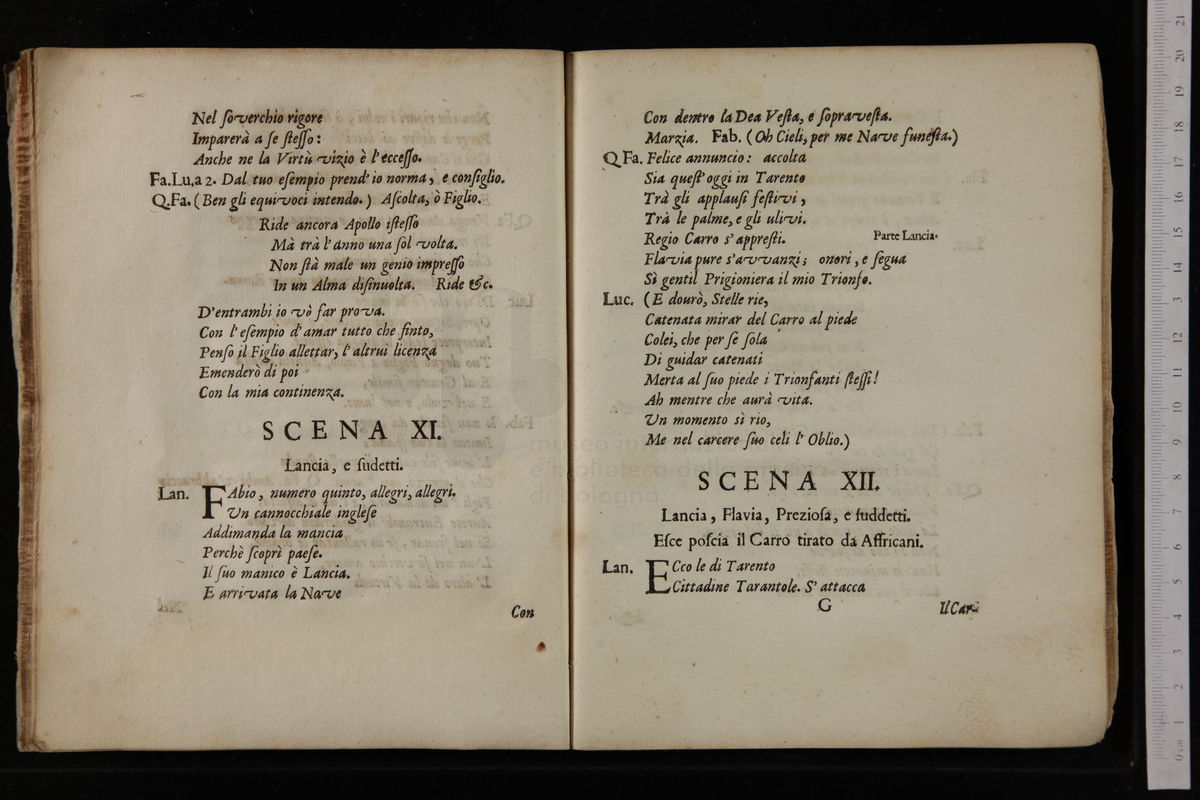 Nel ſoverchio rigore
Imparerà a ſe ſteſſo:
Anche ne la Virtù vizio è l'ecceſſo.
Fa.Lu.a 2. Dal tuo eſempio prend'io norma, e conſiglio.
Q.Fa. (Ben gli equivoci intendo.) Aſcolta, ò Figlio.
Ride ancora Apollo iſteſſo
Mà trà l'anno una ſol volta.
Non ſtà male un genio impreſſo
In un Alma diſinuolta. Ride &c.
D'entrambi io vò far prova.
Con l'eſempio d'amar tutto che finto,
Penſo il Figlio allettar, l'altrui licenza
Emenderò di poi
Con la mia continenza.
SCENA XI.
Lancia, e ſudetti.
Lan. FAbio, numero quinto, allegri, allegri.
Un cannocchiale ingleſe
Addimanda la mancia
Perchè ſcoprì paeſe.
Il ſuo manico è Lancia.
E arrivata la Nave
Con
Con dentro la Dea Veſta, e ſopraveſta.
Marzia. Fab. (Oh Cieli, per me Nave funeſta.)
Q Fa. Felice annuncio: accolta
Sia queſt'oggi in Tarento
Trà gli applauſi feſtivi,
Trà le palme, e gli ulivi.
Regio Carro s'appreſti. Parte Lancia.
Flavia pure s'avvanzi; onori, e ſegua
Sì gentil Prigioniera il mio Trionfo.
Luc. (E dourò, Stelle rie,
Catenata mirar del Carro al piede
Colei, che per ſe ſola
Di guidar catenati
Merta al ſuo piede i Trionfanti ſteſſi!
Ah mentre che aurà vita.
Un momento sì rio,
Me nel carcere ſuo celi l'Oblio.)
SCENA XII.
Lancia, Flavia, Prezioſa, e ſuddetti.
Eſce poſcia il Carro tirato da Affricani.
Lan. ECco le di Tarento
Cittadine Tarantole. S'attacca
G
Il Car-